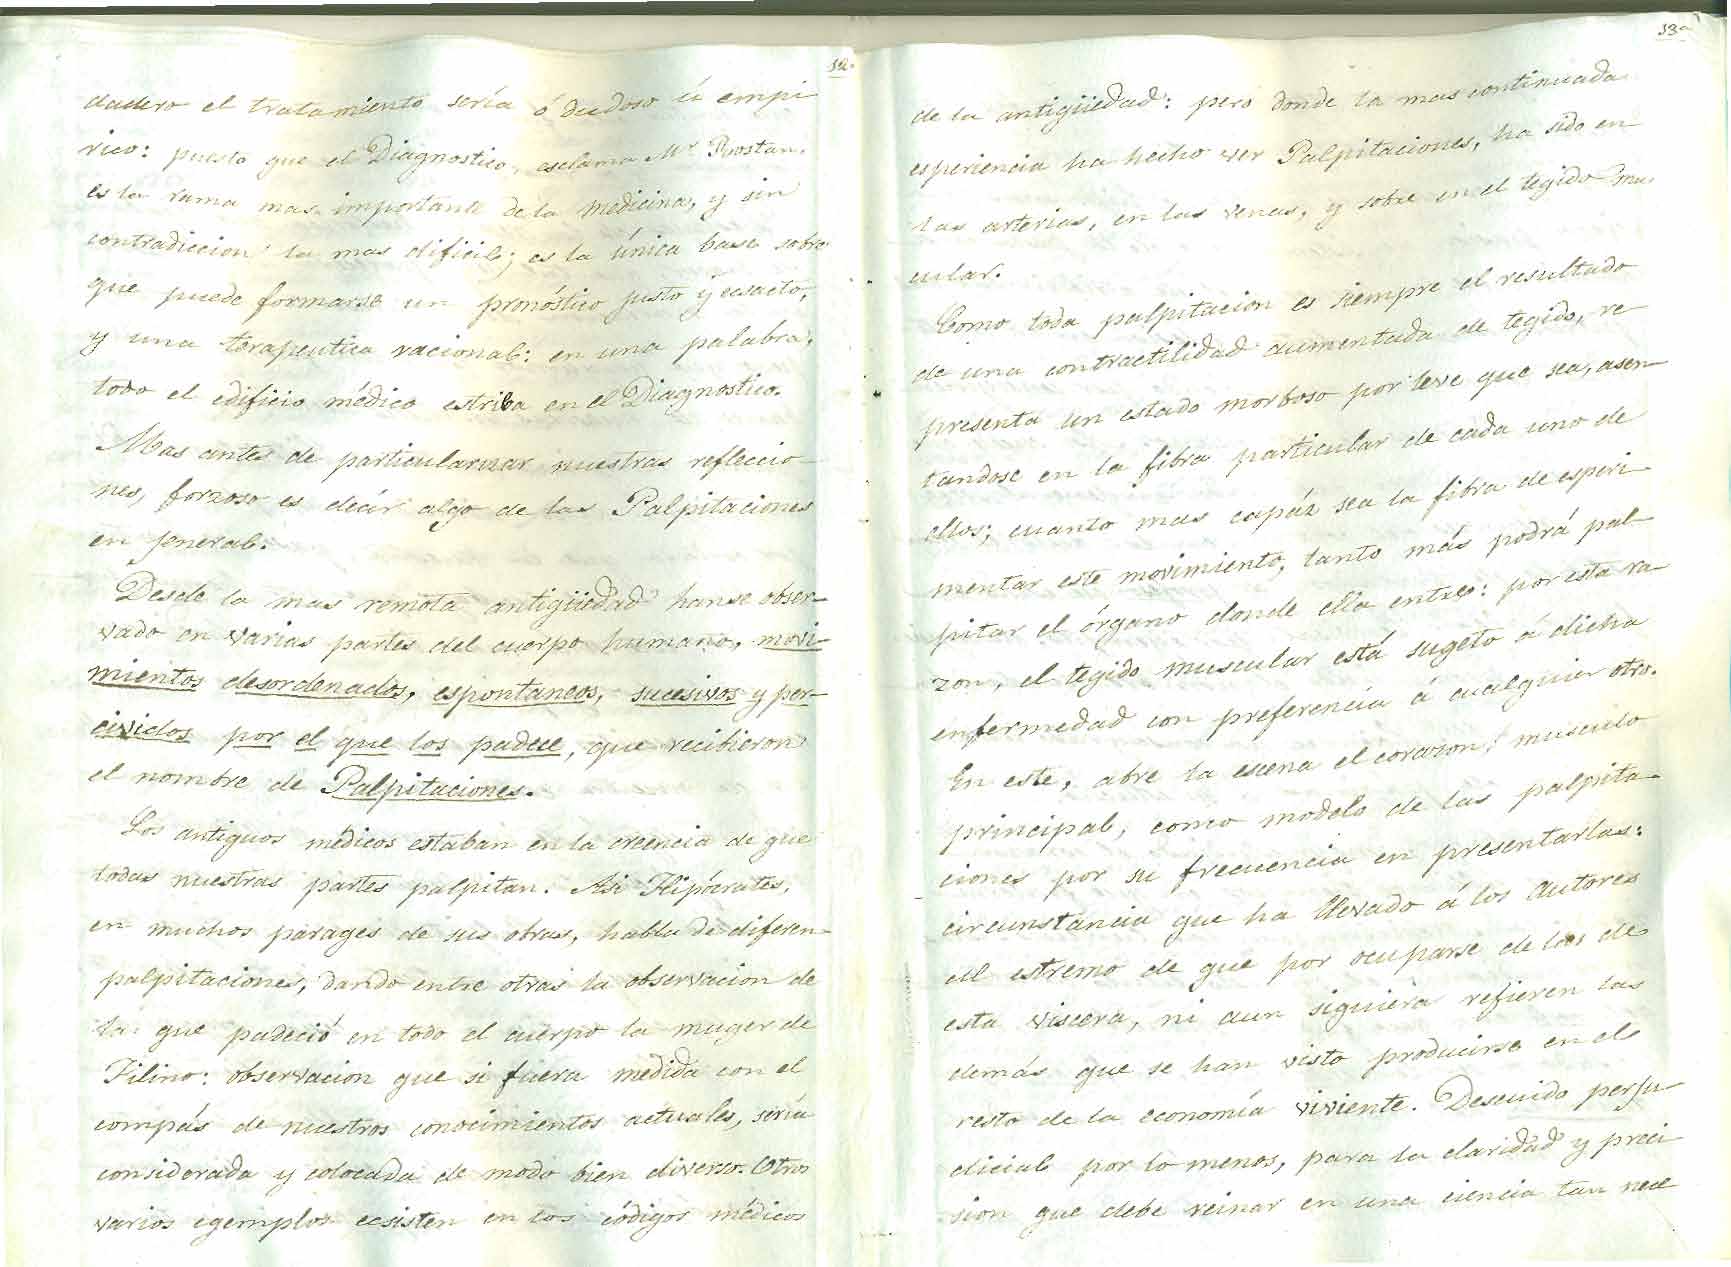 12.
dadero el tratamiento sería ó dudoso ú empi
rico: puesto que el Diagnostico, esclama Mr. Rostan,
es la rama mas importante de la medicina, y sin
contradiccion la mas dificil; es la única base sobre
que puede formarse un pronóstico justo y ecsacto,
y una terapeutica racional: en una palabra,
todo el edificio médico estriba en el Diagnostico.
Mas antes de particularizar nuestras refleccio-
nes, forzoso es decir algo de las Palpitaciones
en jeneral.
Desde la mas remota antigüedad hanse obser-
vado en varias partes del cuerpo humano, movi-
mientos desordenados, espontaneos, sucesivos y per-
cividos por el que los padece, que recibieron
el nombre de Palpitaciones.
Los antiguos médicos estaban en la creencia de que
todas nuestras partes palpitan. Asi Hipócrates,
en muchos parages de sus obras, habla de diferen-
palpitaciones, dando entre otras la observacion de
la que padeció en todo el cuerpo la muger de
Filino: observacion que si fuera medida con el
compás de nuestros conocimientos actuales, sería
considerada y colocada de modo bien diverso. Otros
varios egemplos ecsisten en los códigos médicos
13.
de la antigüedad: pero donde la mas continuada
esperiencia ha hecho ver Palpitaciones, ha sido en
las arterias, en las venas, y sobre en el tegido mu-
cular.
Como toda palpitacion es siempre el resultado
de una contractilidad aumentada de tegido, re
presenta un estado morboso por leve que sea, asen-
tandose en la fibra particular de cada uno de
ellos; cuanto mas capáz sea la fibra de esperi-
mentar este movimiento, tanto más podrá pal-
pitar el órgano donde ella entre: por esta ra-
zon, el tegido muscular está sugeto á dicha
enfermedad con preferencia á cualquier otro.
En este, abre la escena el corazon, musculo
principal, como modelo de las palpita-
ciones por su frecuencia en presentarlas:
circunstancia que ha llevado á los autores
al estremo de que por ocuparse de las de
esta viscera, ni aun siquiera refieren las
demás que se han visto producirse en el
resto de la economía viviente. Descuido perju-
dicial por lo menos, para la claridad y preci
sion que debe reinar en una ciencia tan nece